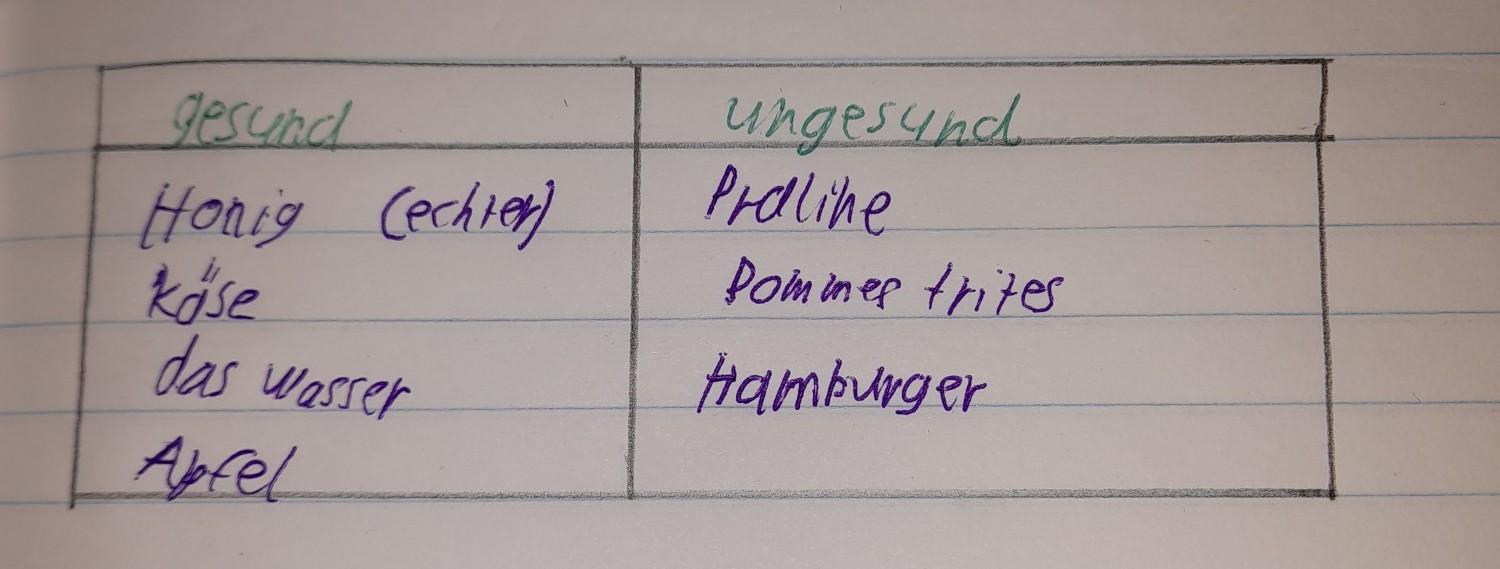 gesund ungesund
Honig (echter) Praline
Käse Pommes frites
das Wasser Hamburger
Apfel